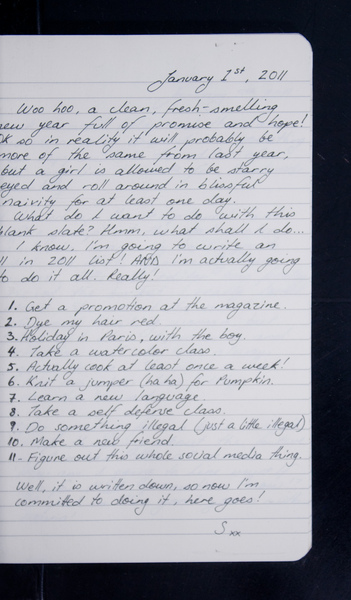 January 1st, 2011
Woo hoo, a clean, fresh-smelling
new year full of promise and hope!
OK so in reality it will probably be
more of the same from last year,
but a girl is allowed to be starry
eyed and roll around in blissful
naivity for at least one day.
What do I want to do with this
blank slate? Hmm, what shall I do...
I know, I'm going to write an
11 in 2011 list! AND I'm actually going
to do it all. Really!
1. Get a promotion at the magazine.
2. Dye my hair red.
3. Holiday in Paris, with the boy.
4. Take a watercolor class.
5. Actually cook at least once a week!
6. Knit a jumper (haha) for Pumpkin.
7. Learn a new language.
8. Take a self defense class.
9. Do something illegal (just a little illegal)
10. Make a new friend.
11- Figure out this whole social media thing.
Well, it is written down, so now I'm
committed to doing it, here goes!
S xx